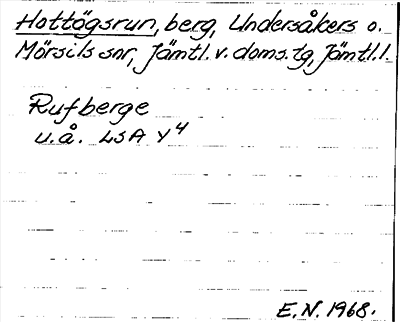 Hottögsrun, berg, Undersåkers o.
Mörsils snr, Jämtl. v. doms. tg, Jämtl. l.
Rufberge
u.å. LSA Y4
E.N. 1968.